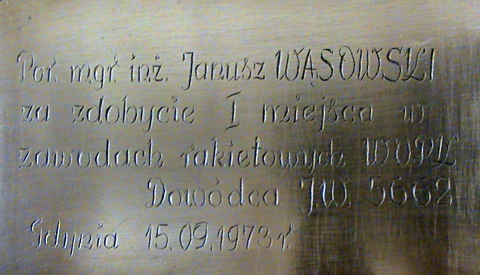 Por. mgr. inż. Janusz WĄSOWSKI
za zdobycie I miejsca w
zawodach rakietowych WOPL
Dowódca JW. 5662
Gdynia 15.09.1973 r.